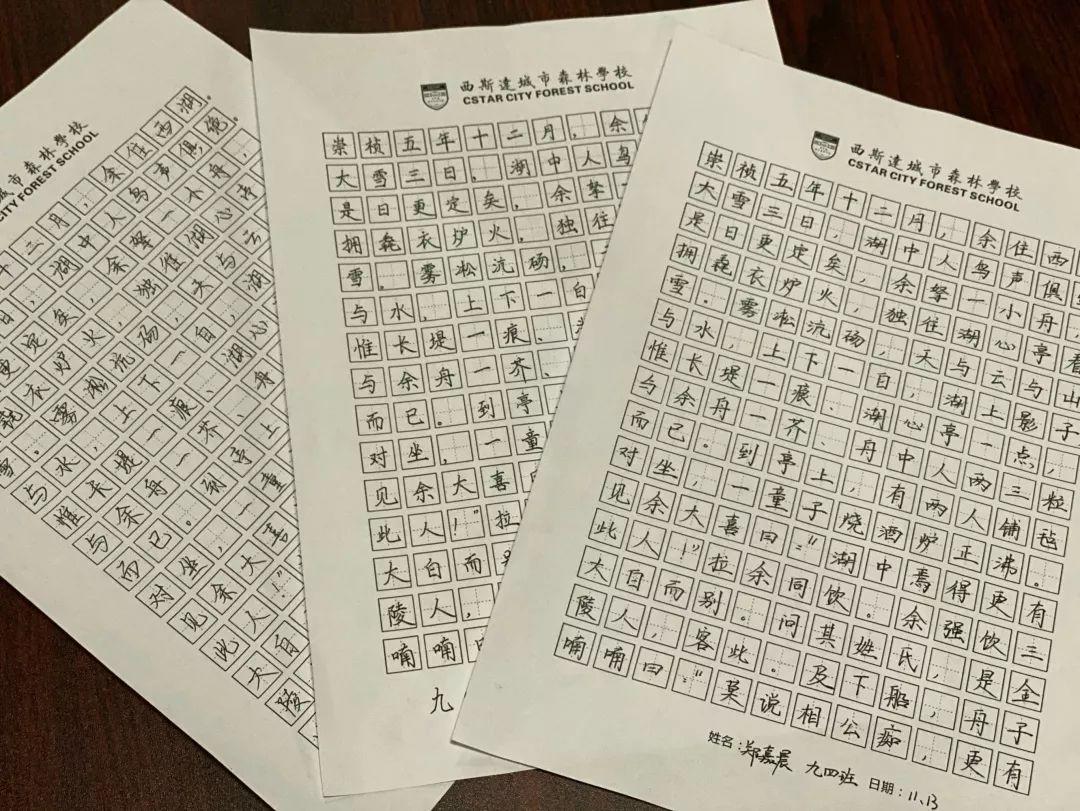 城市森林學校
CITY FOREST SCHOOL
十二月，余住西湖。
，湖中人鸟声俱绝。
日更定矣，余拏一小舟，
毳衣炉火，独往湖心亭
雪。雾凇沆砀，天与云
与水，上下一白，湖
惟长堤一痕、湖心
与余舟一芥、舟
而已。到亭上
对坐，一童
见余大喜
此人！”
大白
陵
西斯達城市森林學校
CSTAR CITY FOREST SCHOOL
崇祯五年十二月，余
大雪三日。湖中人鸟
是日更定矣，余拏一
拥毳衣炉火，独往
雪。雾凇沆砀，
与水，上下一白
惟长堤一痕、
与余舟一芥、
而已。到亭
对坐，一童
见余大喜
此人！”拉
大白而
陵人，
喃喃
九
西斯達城市森林學校
CSTAR CITY FOREST SCHOOL
崇祯五年十二月，余住西
大雪三日，湖中人鸟声俱
是日更定矣，余拏一小舟，
拥毳衣炉火，独往湖心亭看
雪。雾凇沆砀，天与云与山
与水，上下一白，湖上影子
惟长堤一痕、湖心亭一点，
与余舟一芥、舟中人两三粒
而已。到亭上，有两人铺毡
对坐，一童子烧酒炉正沸。
见余大喜曰：“湖中焉得更有
此人！”拉余同饮。余强饮三
大白而别。问其姓氏，是金
陵人，客此。及下船，舟子
喃喃曰：“莫说相公痴，更有
姓名：郑嘉晨 九四班 日期：11.13